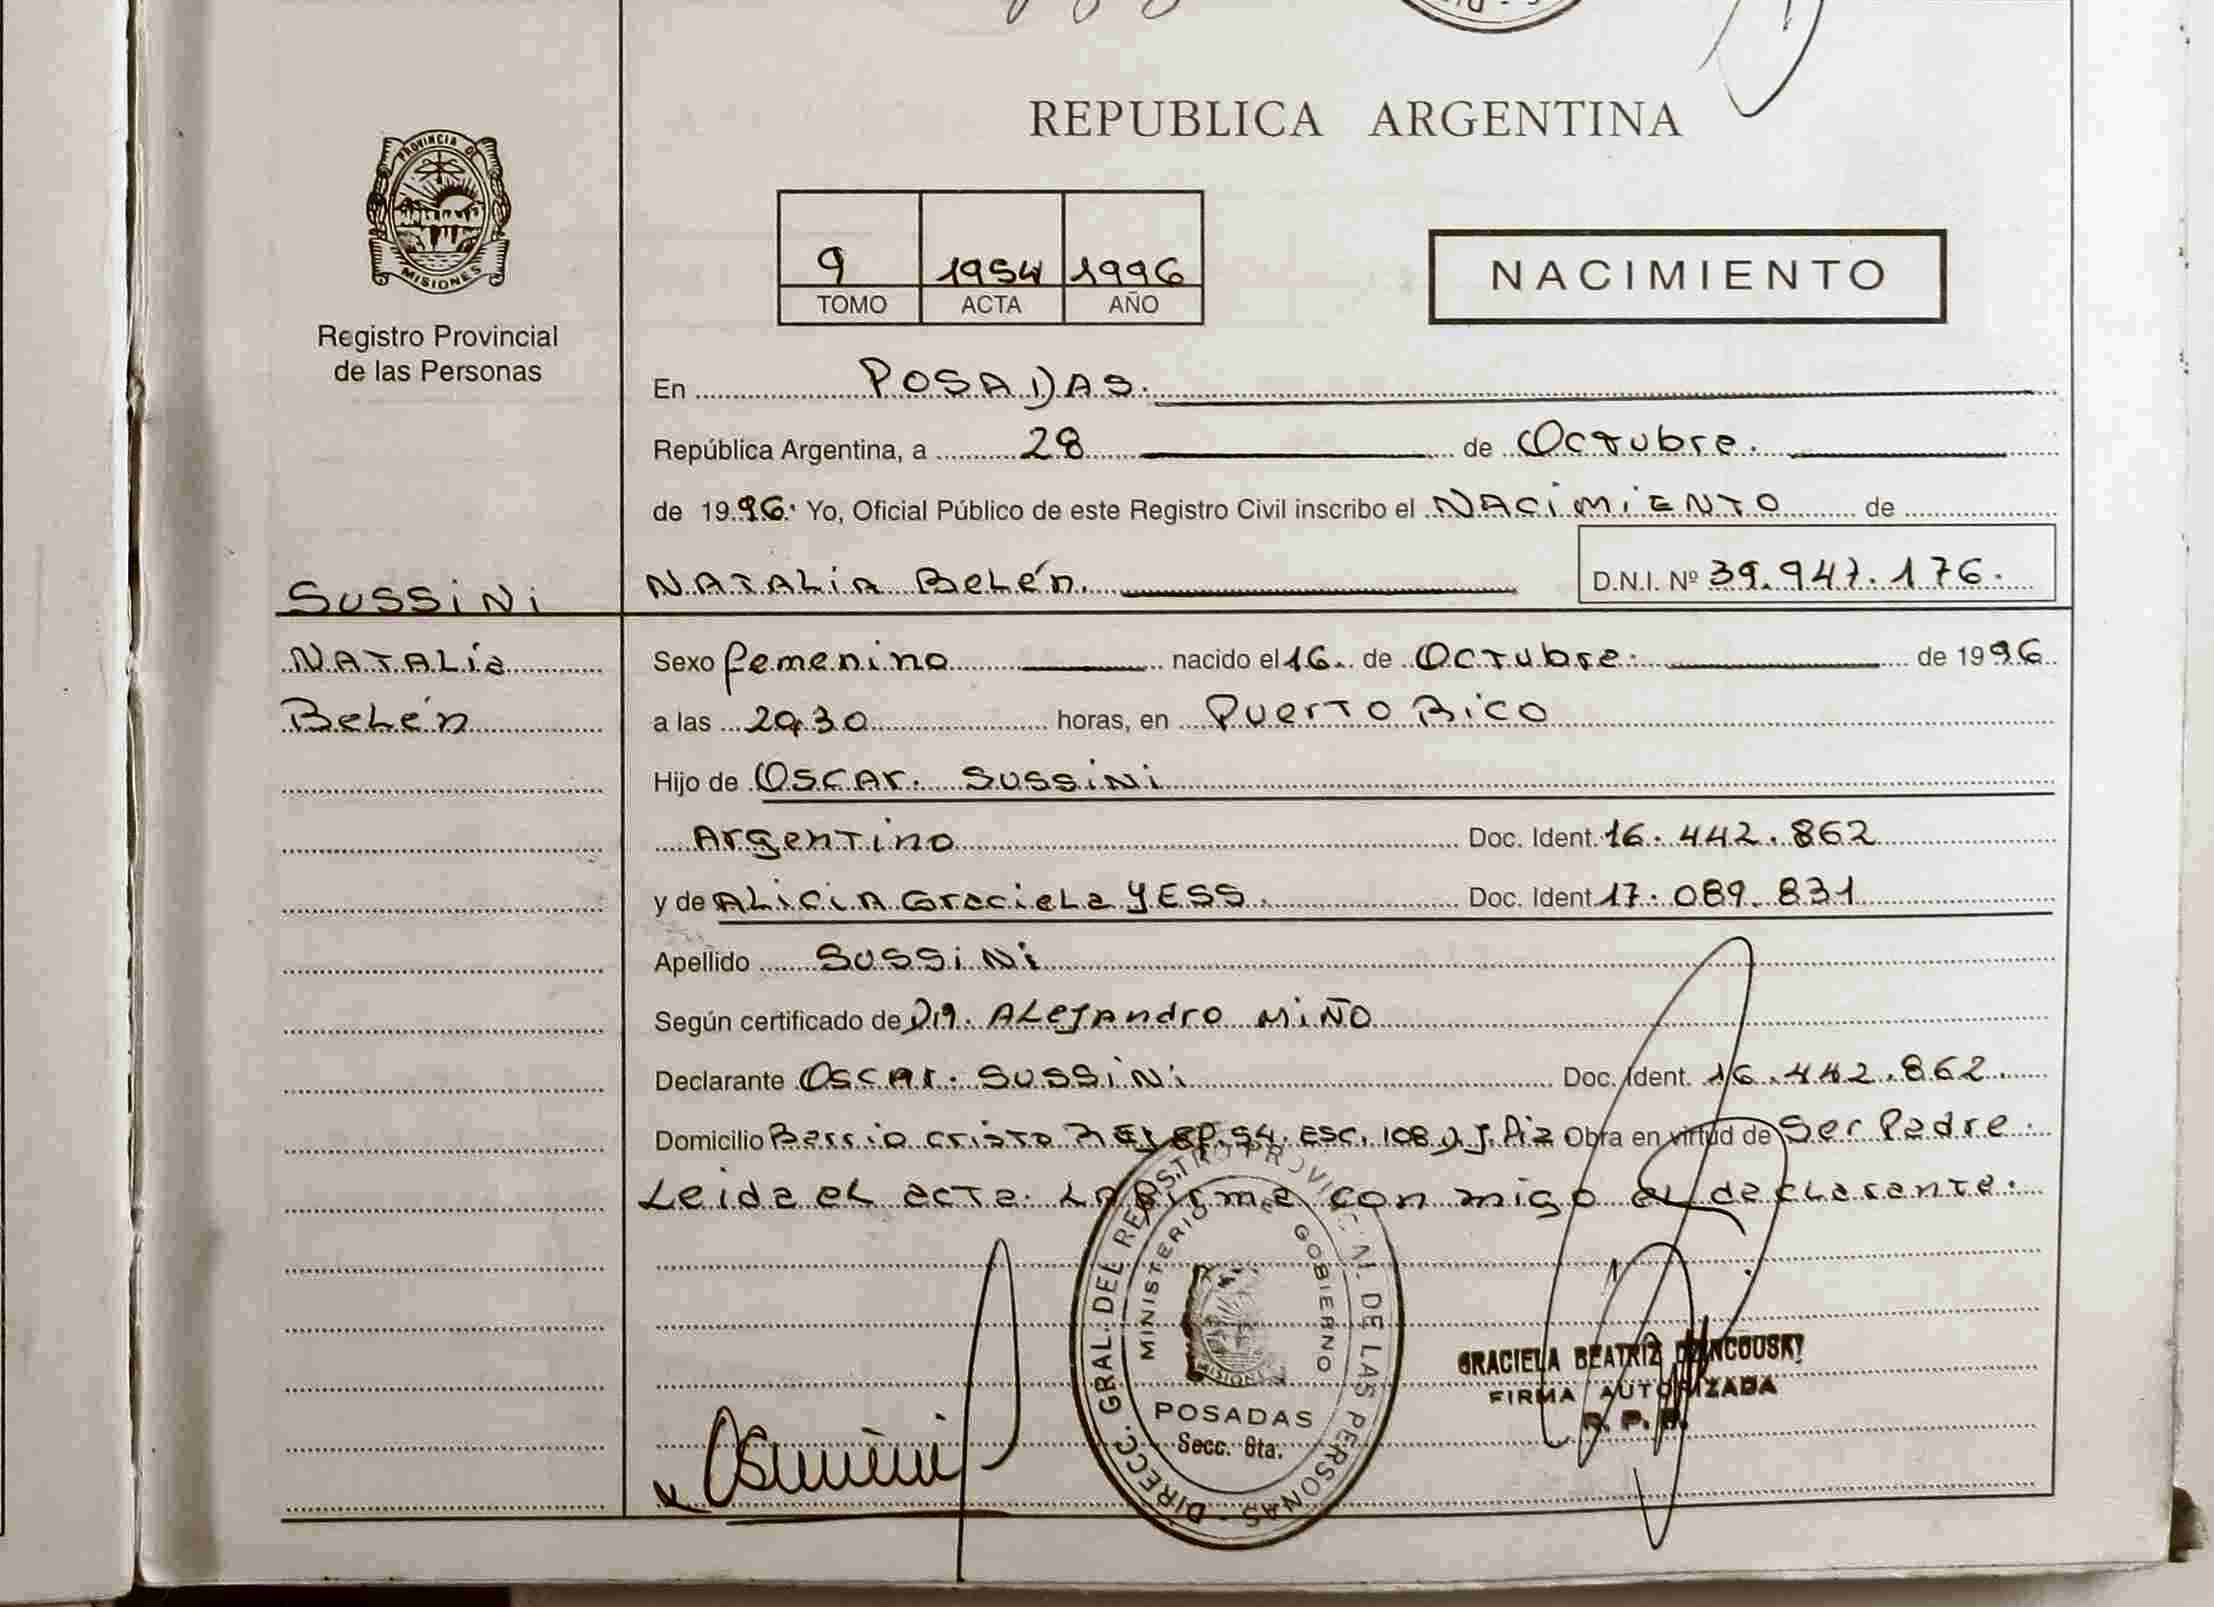 REPUBLICA ARGENTINA
PROVINCIA DE
MISIONES
Registro Provincial
de las Personas
9 1954 1996
TOMO ACTA AÑO
NACIMIENTO
En POSADAS.
República Argentina, a 28 de Octubre.
de 1996. Yo, Oficial Público de este Registro Civil inscribo el NACIMIENTO de
SUSSINI
NATALIA BELÉN. D.N.I. Nº 39.947.176.
NATALIA
BELÉN
Sexo femenino nacido el 16 de Octubre. de 1996
a las horas, en Puerto Rico
Hijo de OSCAR. SUSSINI
Argentino Doc. Ident. 16.442.862
y de ALICIA Graciela YESS. Doc. Ident. 17.089.831
Apellido SUSSINI
Según certificado de DR. ALEJANDRO MIÑO
Declarante OSCAR. SUSSINI Doc. Ident. 16.442.862.
Domicilio Barrio cristo REY 54. ESC. 108 Obra en virtud de Ser Padre.
Leida el acta. La firma con migo el declarante.
DIRECC. GRAL. DEL REGISTRO PROVINC. DE LAS PERSONAS
MINISTERIO DE GOBIERNO
POSADAS
Secc. 6ta.
GRACIELA BEATRIZ
FIRMA AUTORIZADA
R. P. P.